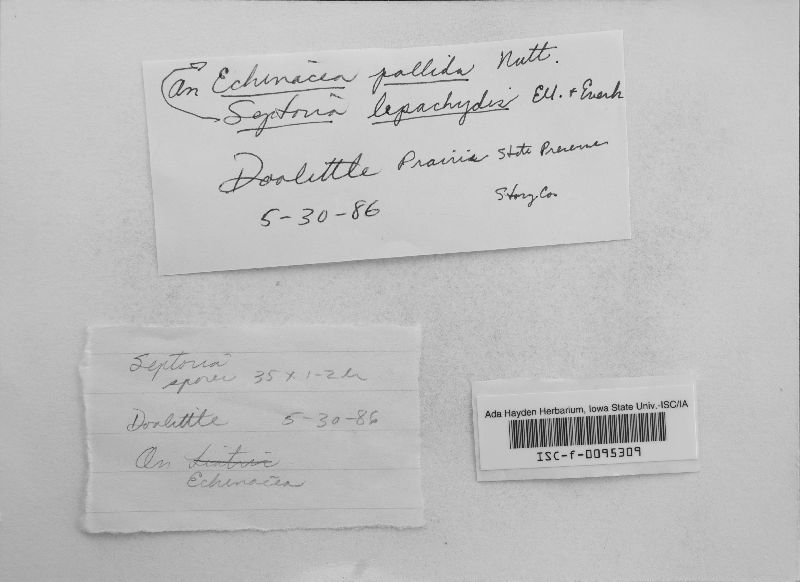 On Echinacea pallida Nutt.
Septoria lepachydis Ell. + Everh
Doolittle Prairie State Preserve
Story Co.
5-30-86
Septoria
spores 35 x 1-2 u
Doolittle 5-30-86
On Liatris
Echinacea
Ada Hayden Herbarium, Iowa State Univ.-ISC/IA
ISC-f-0095309